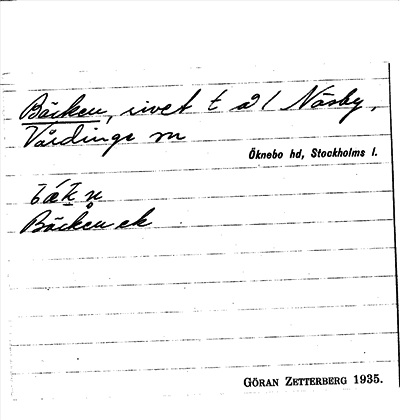 Bäcken, rivet t a 1 Näsby,
Vårdinge sn
Öknebo hd, Stockholms l.
Bäcken ek
GÖRAN ZETTERBERG 1935.